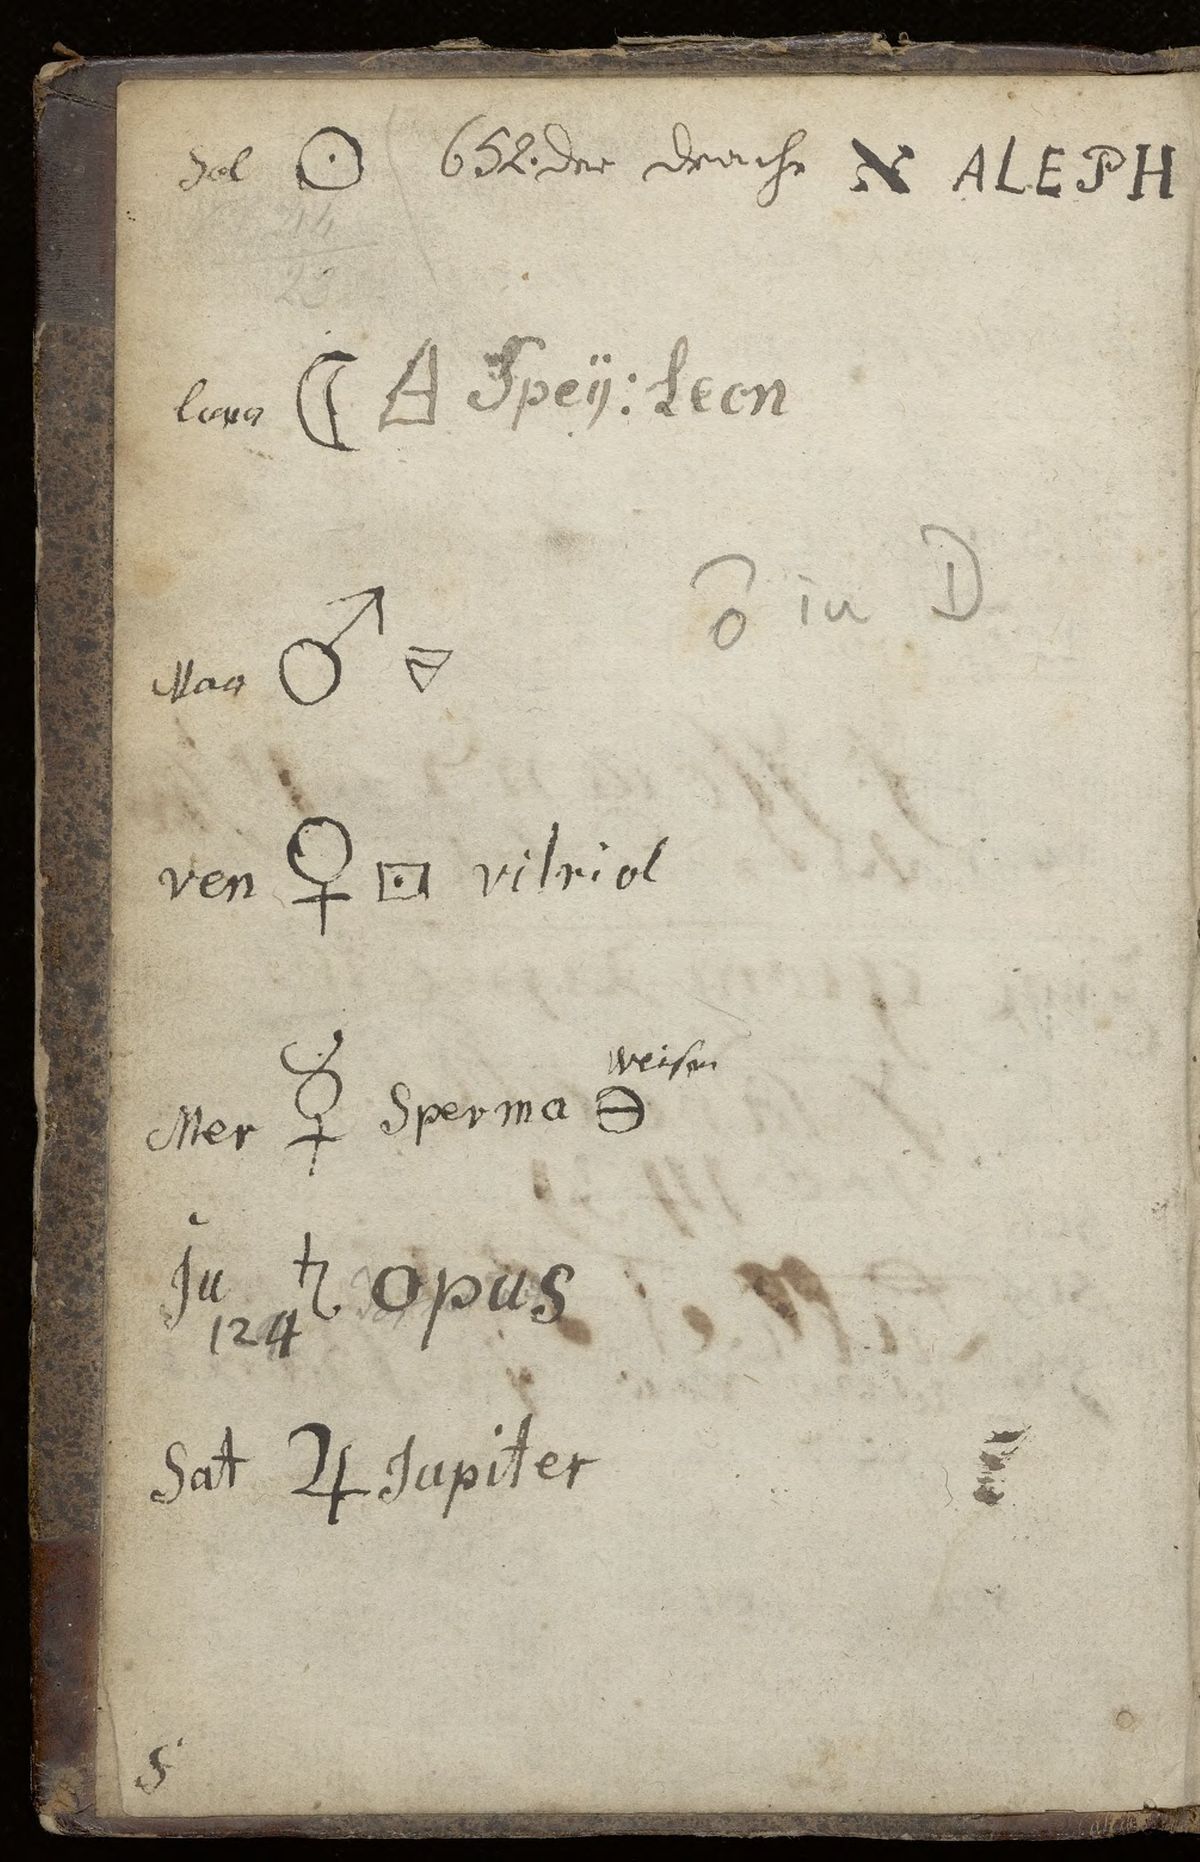 Sol ☉ 652. der drache א ALEPH
44
23
luna ☾ Speÿ: Leon
in D
Mar ♂
ven ♀ ⊡ vitriol
weisen
Mer ☿ Sperma ⊖
Ju ♄ opus
124
Sat ♃ Jupiter